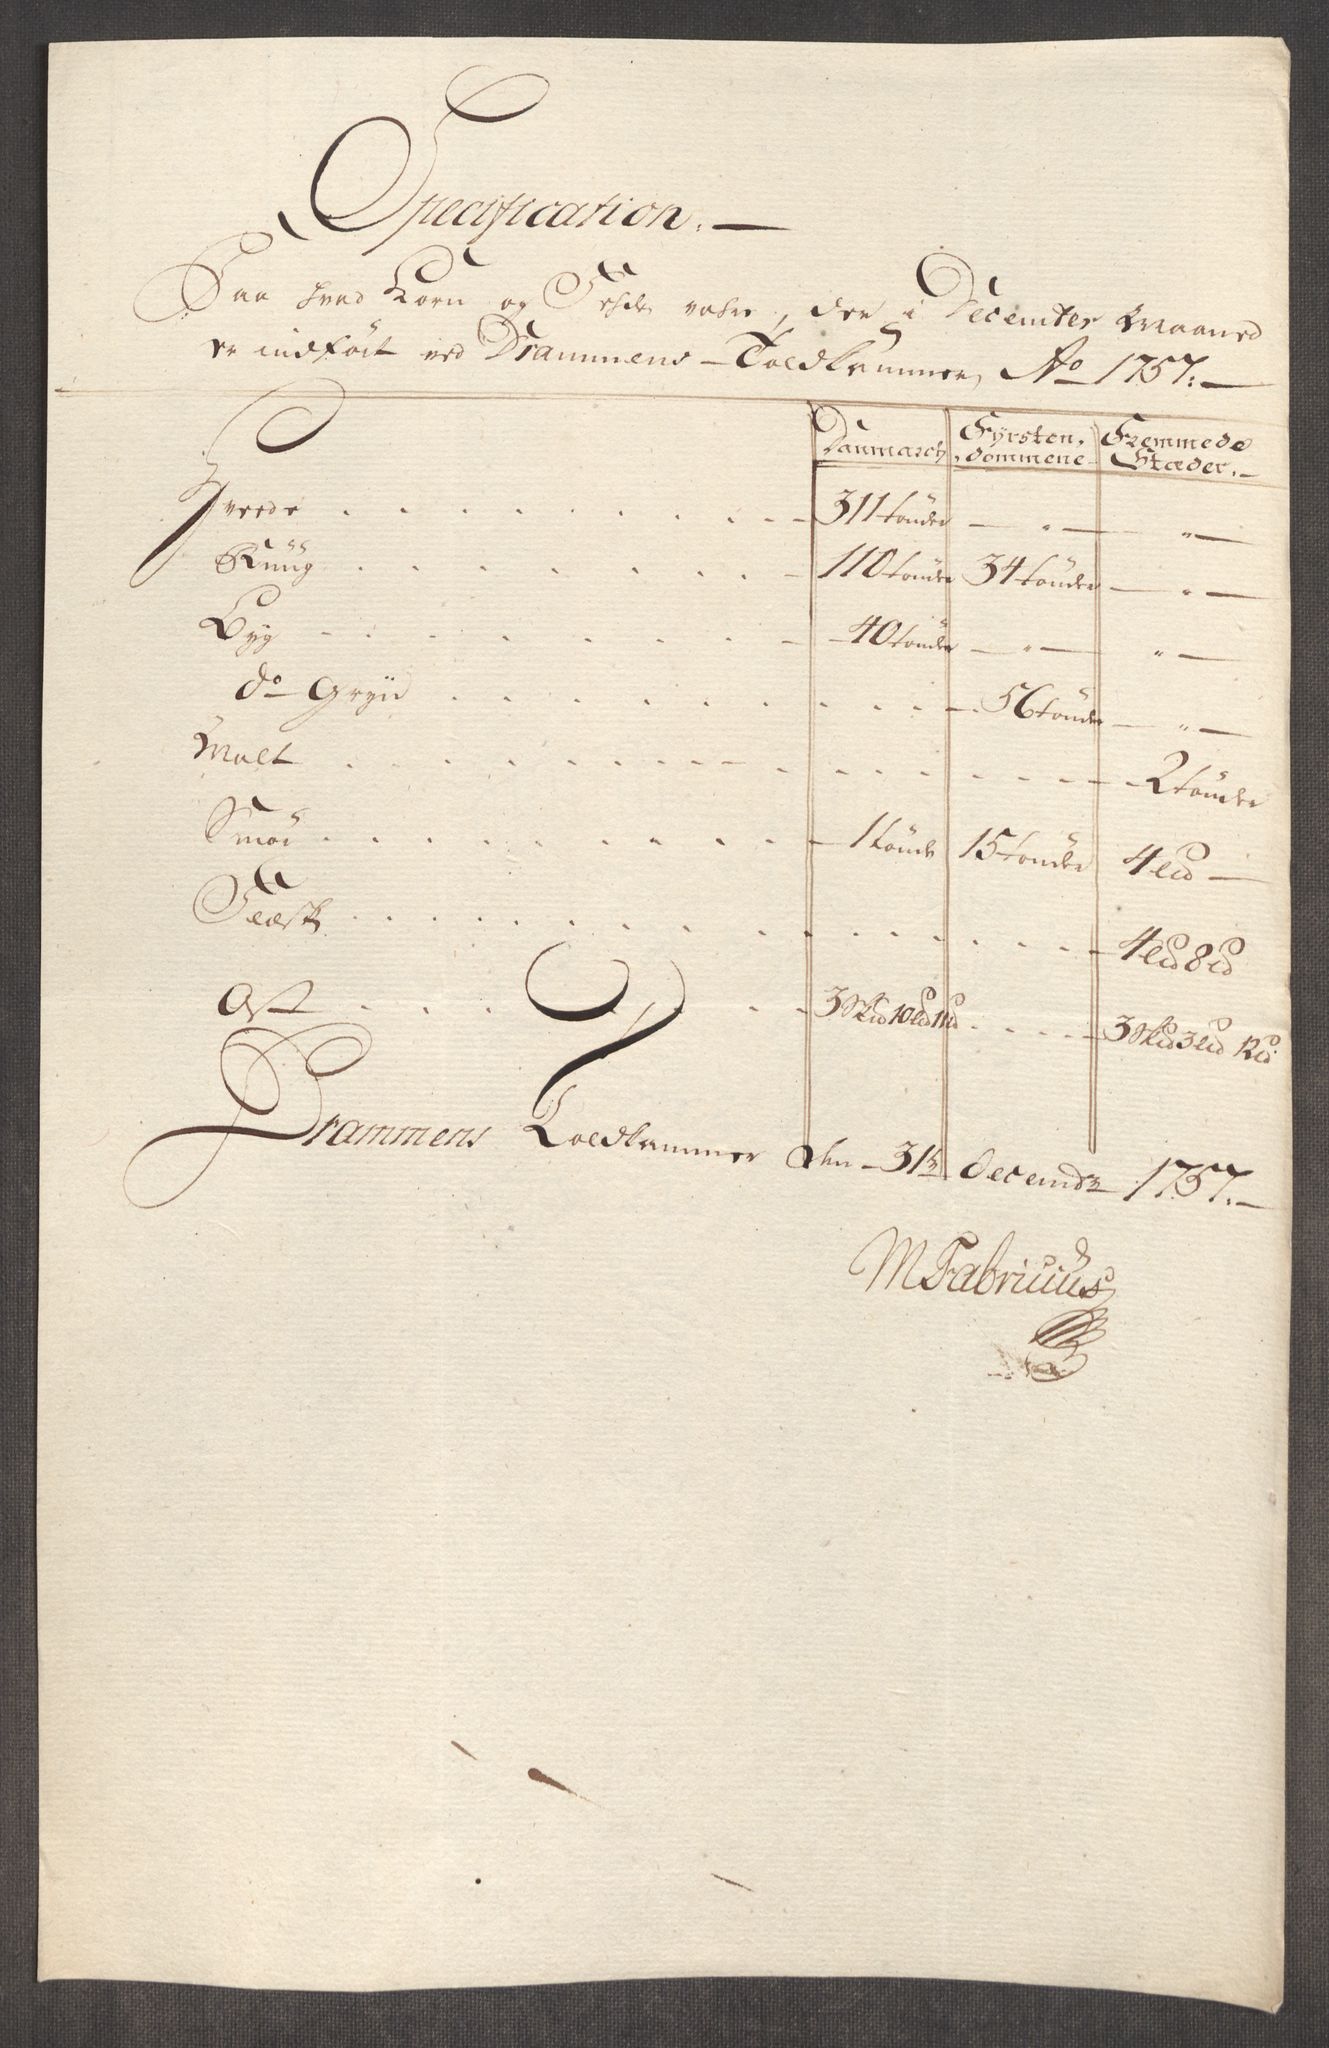 Specification.
Paa hvad Korn og Fehde vahre, der i December Maaned
er indført ved Drammens Toldkammer, Ao 1757.
Danmarch Fyrsten- Fremmede
dommene Stæder.
Hvede 311 tønder — " — " —
Rüüg 110 tønder 34 tønder — " —
Byg 40 tønder — " — " —
do Gryn 56 tønder — " —
Malt 2 tønder
Smør 1 tønde 15 tønder 4 L℔ —
Flæsk 4 L℔ 8 ℔
Ost 3 Sk℔ 10 L℔ 11 ℔ 3 Sk℔ 3 L℔ 12 ℔
Drammens Toldkammer den 31te Decembr 1757.
MFabricius